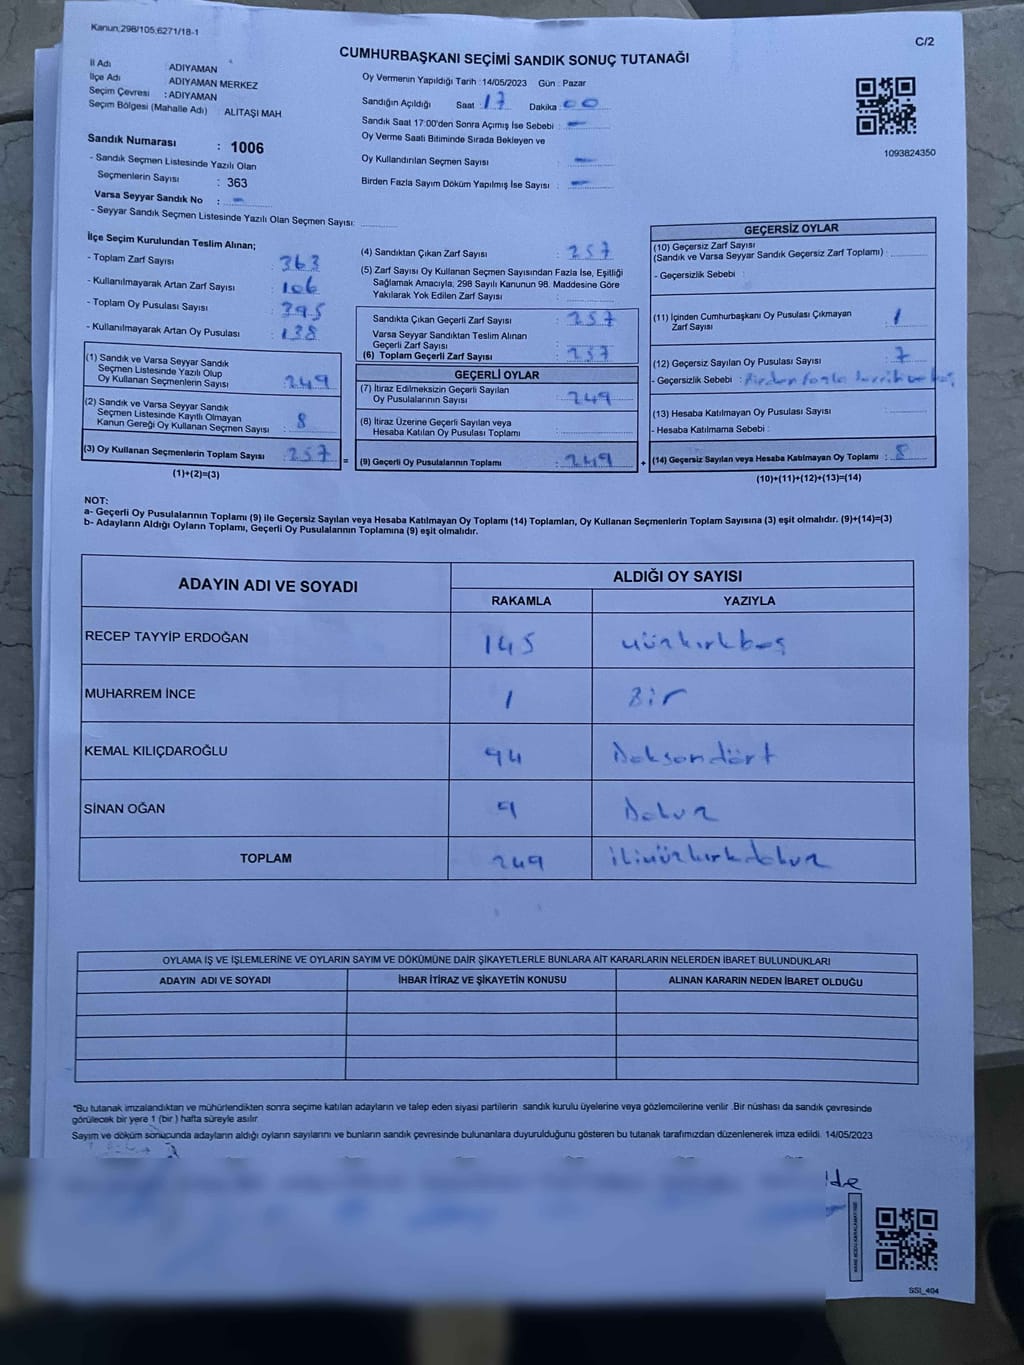 Kanun,298/105,6271/18-1
C/2
CUMHURBAŞKANI SEÇİMİ SANDIK SONUÇ TUTANAĞI
İl Adı : ADIYAMAN
İlçe Adı : ADIYAMAN MERKEZ
Seçim Çevresi : ADIYAMAN
Seçim Bölgesi (Mahalle Adı) : ALİTAŞI MAH
Sandık Numarası : 1006
- Sandık Seçmen Listesinde Yazılı Olan
Seçmenlerin Sayısı : 363
Varsa Seyyar Sandık No : -
- Seyyar Sandık Seçmen Listesinde Yazılı Olan Seçmen Sayısı:
Oy Vermenin Yapıldığı Tarih : 14/05/2023 Gün : Pazar
Sandığın Açıldığı Saat : 17 Dakika : 00
Sandık Saat 17:00'den Sonra Açmış İse Sebebi : -
Oy Verme Saati Bitiminde Sırada Bekleyen ve
Oy Kullandırılan Seçmen Sayısı : -
Birden Fazla Sayım Döküm Yapılmış İse Sayısı : -
1093824350
İlçe Seçim Kurulundan Teslim Alınan;
- Toplam Zarf Sayısı : 363
- Kullanılmayarak Artan Zarf Sayısı : 106
- Toplam Oy Pusulası Sayısı : 395
- Kullanılmayarak Artan Oy Pusulası : 138
(1) Sandık ve Varsa Seyyar Sandık
Seçmen Listesinde Yazılı Olup
Oy Kullanan Seçmenlerin Sayısı : 249
(2) Sandık ve Varsa Seyyar Sandık
Seçmen Listesinde Kayıtlı Olmayan
Kanun Gereği Oy Kullanan Seçmen Sayısı : 8
(3) Oy Kullanan Seçmenlerin Toplam Sayısı : 257
(1)+(2)=(3)
(4) Sandıktan Çıkan Zarf Sayısı : 257
(5) Zarf Sayısı Oy Kullanan Seçmen Sayısından Fazla İse, Eşitliği
Sağlamak Amacıyla, 298 Sayılı Kanunun 98. Maddesine Göre
Yakılarak Yok Edilen Zarf Sayısı :
Sandıkta Çıkan Geçerli Zarf Sayısı : 257
Varsa Seyyar Sandıktan Teslim Alınan
Geçerli Zarf Sayısı :
(6) Toplam Geçerli Zarf Sayısı : 257
GEÇERLİ OYLAR
(7) İtiraz Edilmeksizin Geçerli Sayılan
Oy Pusulalarının Sayısı : 249
(8) İtiraz Üzerine Geçerli Sayılan veya
Hesaba Katılan Oy Pusulası Toplamı :
= (9) Geçerli Oy Pusulalarının Toplamı : 249
GEÇERSİZ OYLAR
(10) Geçersiz Zarf Sayısı
(Sandık ve Varsa Seyyar Sandık Geçersiz Zarf Toplamı) :
- Geçersizlik Sebebi :
(11) İçinden Cumhurbaşkanı Oy Pusulası Çıkmayan
Zarf Sayısı : 1
(12) Geçersiz Sayılan Oy Pusulası Sayısı : 7
- Geçersizlik Sebebi : Birden fazla tercih
(13) Hesaba Katılmayan Oy Pusulası Sayısı :
- Hesaba Katılmama Sebebi :
+ (14) Geçersiz Sayılan veya Hesaba Katılmayan Oy Toplamı : 8
(10)+(11)+(12)+(13)=(14)
NOT:
a- Geçerli Oy Pusulalarının Toplamı (9) ile Geçersiz Sayılan veya Hesaba Katılmayan Oy Toplamı (14) Toplamları, Oy Kullanan Seçmenlerin Toplam Sayısına (3) eşit olmalıdır. (9)+(14)=(3)
b- Adayların Aldığı Oyların Toplamı, Geçerli Oy Pusulalarının Toplamına (9) eşit olmalıdır.
ADAYIN ADI VE SOYADI ALDIĞI OY SAYISI
RAKAMLA YAZIYLA
RECEP TAYYİP ERDOĞAN 145 yüzkırkbeş
MUHARREM İNCE 1 Bir
KEMAL KILIÇDAROĞLU 94 Doksandört
SİNAN OĞAN 9 Dokuz
TOPLAM 249 ikiyüzkırkdokuz
OYLAMA İŞ VE İŞLEMLERİNE VE OYLARIN SAYIM VE DÖKÜMÜNE DAİR ŞİKAYETLERLE BUNLARA AİT KARARLARIN NELERDEN İBARET BULUNDUKLARI
ADAYIN ADI VE SOYADI İHBAR İTİRAZ VE ŞİKAYETİN KONUSU ALINAN KARARIN NEDEN İBARET OLDUĞU
*Bu tutanak imzalandıktan ve mühürlendikten sonra seçime katılan adayların ve talep eden siyasi partilerin sandık kurulu üyelerine veya gözlemcilerine verilir .Bir nüshası da sandık çevresinde
görülecek bir yere 1 (bir ) hafta süreyle asılır.
Sayım ve döküm sonucunda adayların aldığı oyların sayılarını ve bunların sandık çevresinde bulunanlara duyurulduğunu gösteren bu tutanak tarafımızdan düzenlenerek imza edildi. 14/05/2023
SSI_404